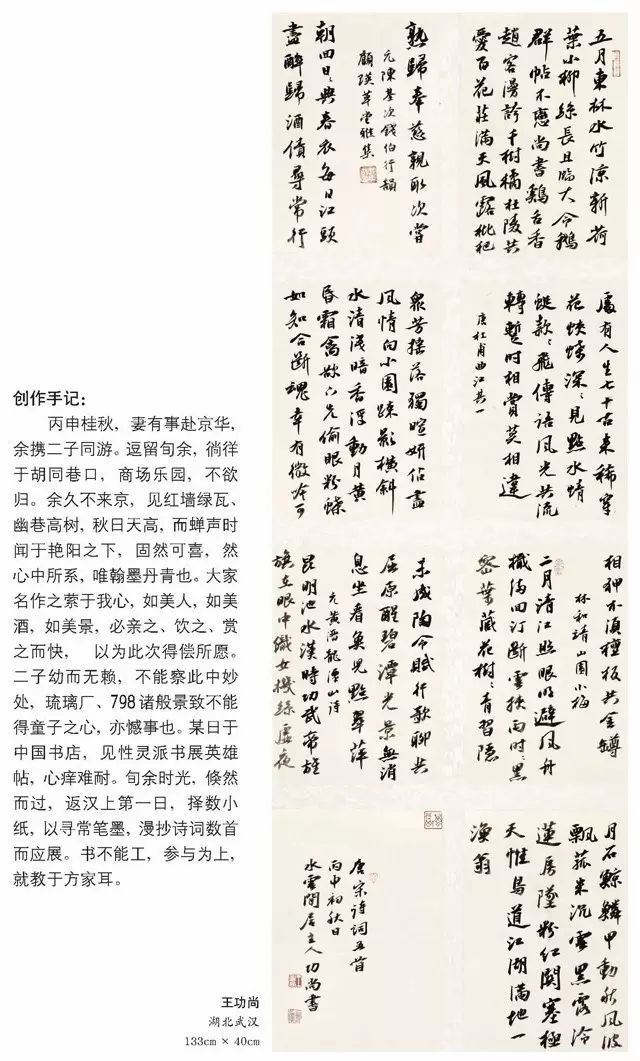 创作手记：
丙申桂秋，妻有事赴京华，
余携二子同游。逗留旬余，徜徉
于胡同巷口，商场乐园，不欲
归。余久不来京，见红墙绿瓦、
幽巷高树，秋日天高，而蝉声时
闻于艳阳之下，固然可喜，然
心中所系，唯翰墨丹青也。大家
名作之萦于我心，如美人，如美
酒，如美景，必亲之、饮之、赏
之而快，以为此次得偿所愿。
二子幼而无赖，不能察此中妙
处，琉璃厂、798诸般景致不能
得童子之心，亦憾事也。某日于
中国书店，见性灵派书展英雄
帖，心痒难耐。旬余时光，倏然
而过，返汉上第一日，择数小
纸，以寻常笔墨，漫抄诗词数首
而应展。书不能工，参与为上，
就教于方家耳。
王功尚
湖北武汉
133cm × 40cm
五月東林水竹涼新荷
葉小柳絲長且臨大令鵝
群帖不戀尚書鷄舌香
趙客漫誇千樹橘杜陵共
愛百花莊滿天風露枇杷
熟歸奉慈親取次嘗
元陳基次錢伯行韻
顧瑛草堂雅集
朝回日々典春衣每日江頭
盡醉歸酒債尋常行
處有人生七十古來稀穿
花蛺蝶深々見點水蜻
蜓款々飛傳語風光共流
轉暫時相賞莫相違
唐杜甫曲江其一
衆芳摇落獨暄妍佔盡
風情向小園疎影橫斜
水清淺暗香浮動月黄
昏霜禽欲下先偷眼粉蝶
如知合斷魂幸有微吟可
相狎不須檀板共金罇
林和靖山園小梅
二月清江照眼明避風舟
檝滿回汀斷雲挾雨時々黑
密葉藏花樹々青習隱
未成陶令賦行歌聊共
屈原醒碧潭光景無消
息坐看魚兒點翠萍
元黄溍龍潭山詩
昆明池水漢時功武帝旌
旗在眼中織女機絲虛夜
月石鯨鱗甲動秋風波
飄菰米沉雲黑露冷
蓮房墜粉紅關塞極
天惟鳥道江湖滿地一
漁翁
唐宋詩詞五首
丙申初秋日
水雲閒居主人功尚書